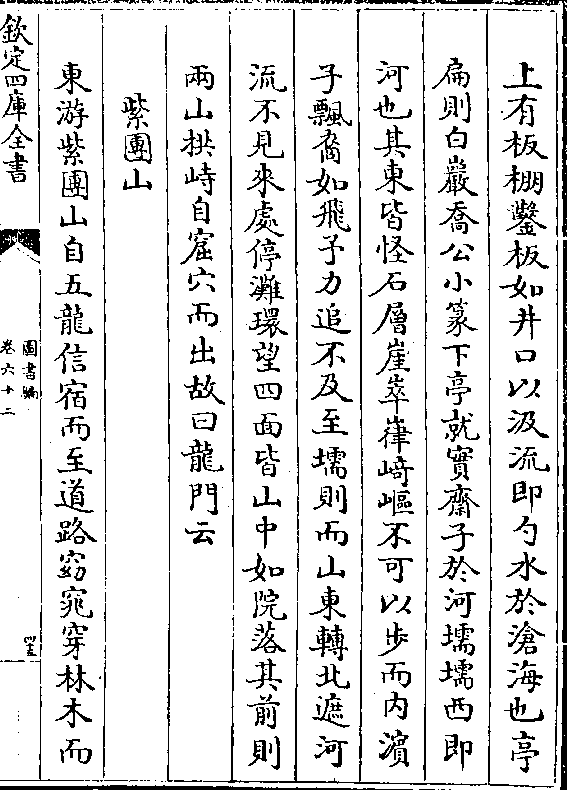 上有板棚鑿板如井口以汲流即勺水於滄海也亭
扁則白巖喬公小篆下亭就實齋子於河壖壖西即
河也其東皆怪石層崖崒嵂﨑嶇不可以步而内濵
子飄裔如飛予力追不及至壖則而山東轉北遮河
流不見來處停灘環望四面皆山中如院落其前則
兩山拱峙自窟穴而出故曰龍門云
紫團山
東游紫團山自五龍信宿而至道路窈窕穿林木而
欽定四庫全書
圖書編
卷六十二